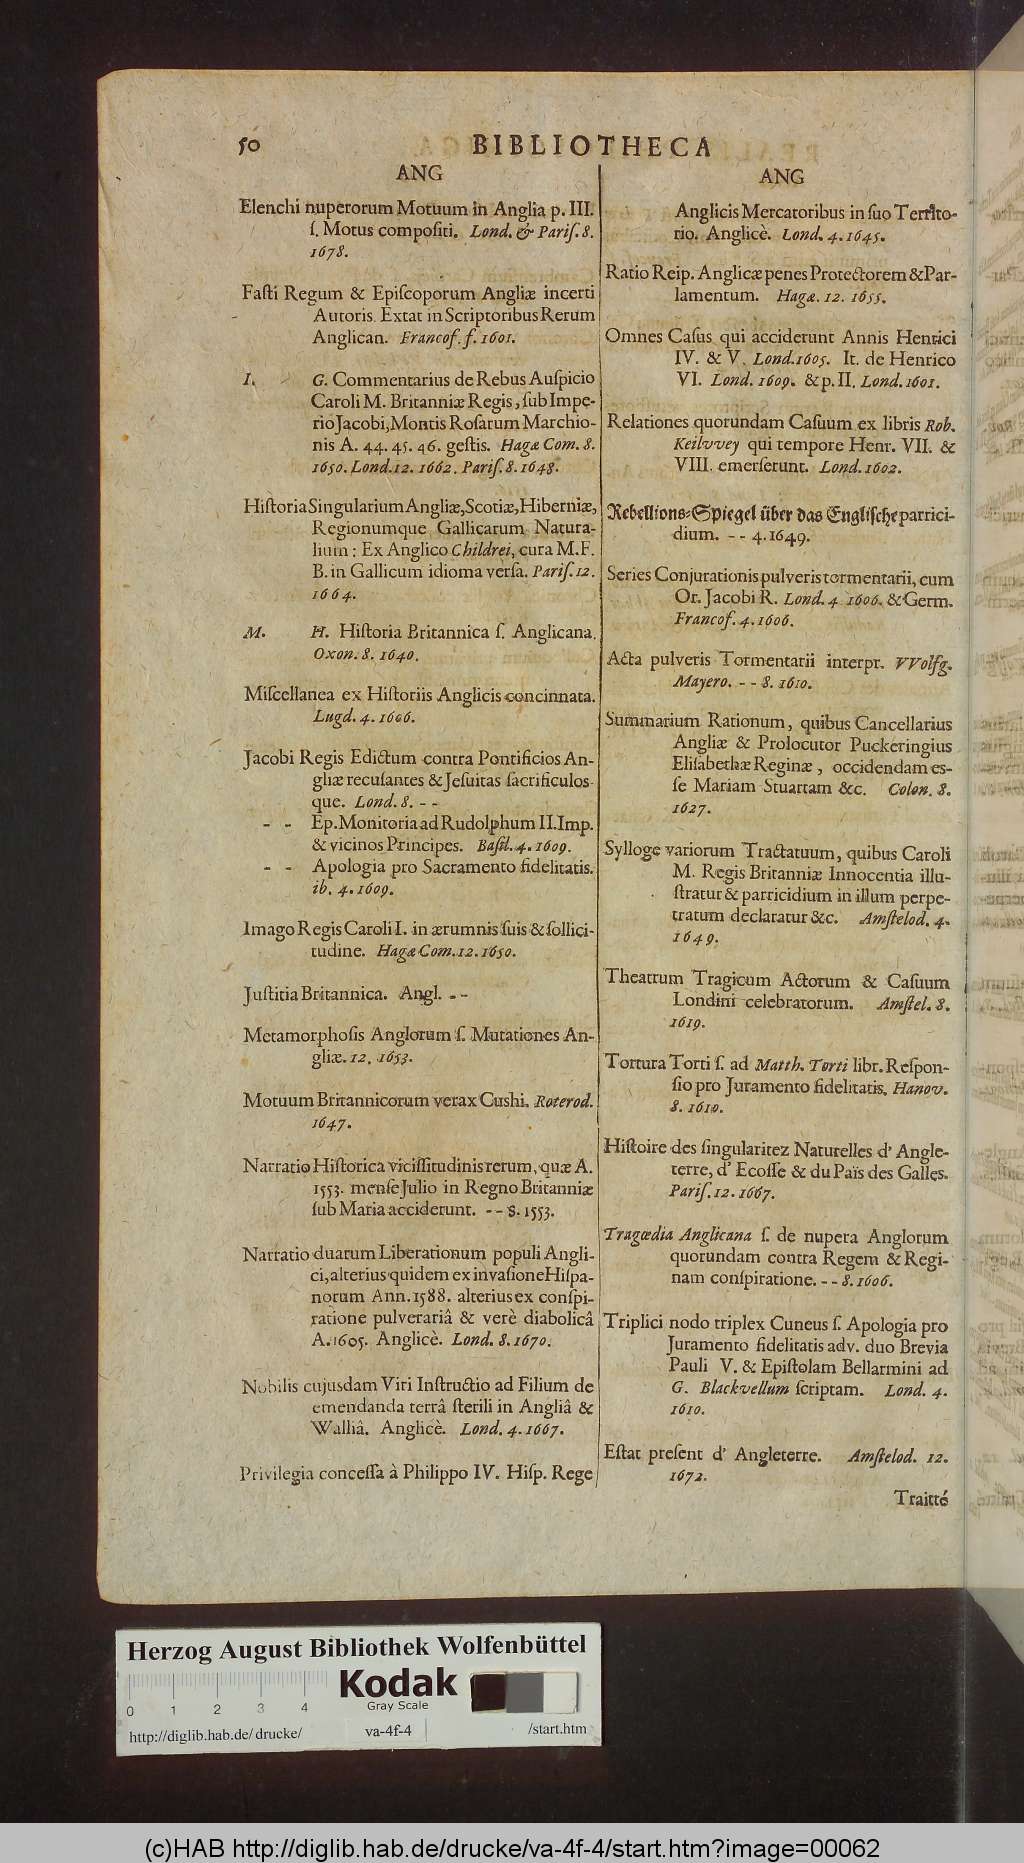 50
BIBLIOTHECA
ANG
Elenchi nuperorum Motuum in Anglia p. III.
ſ. Motus compoſiti. Lond. & Pariſ. 8.
1678.
Faſti Regum & Epiſcoporum Angliæ incerti
Autoris. Extat in Scriptoribus Rerum
Anglican. Francof. f. 1601.
I. G. Commentarius de Rebus Auſpicio
Caroli M. Britanniæ Regis, ſub Impe-
rio Jacobi, Montis Roſarum Marchio-
nis A. 44. 45. 46. geſtis. Hagæ Com. 8.
1650. Lond. 12. 1662. Pariſ. 8. 1648.
Hiſtoria Singularium Angliæ, Scotiæ, Hiberniæ,
Regionumque Gallicarum Natura-
lium: Ex Anglico Childrei, cura M. F.
B. in Gallicum idioma verſa. Pariſ. 12.
1664.
M. H. Hiſtoria Britannica ſ. Anglicana.
Oxon. 8. 1640.
Miſcellanea ex Hiſtoriis Anglicis concinnata.
Lugd. 4. 1606.
Jacobi Regis Edictum contra Pontificios An-
gliæ recuſantes & Jeſuitas ſacrificulos-
que. Lond. 8. - -
- - Ep. Monitoria ad Rudolphum II. Imp.
& vicinos Principes. Baſil. 4. 1609.
- - Apologia pro Sacramento fidelitatis.
ib. 4. 1609.
Imago Regis Caroli I. in ærumnis ſuis & ſollici-
tudine. Hagæ Com. 12. 1650.
Juſtitia Britannica. Angl. - -
Metamorphoſis Anglorum ſ. Mutationes An-
gliæ. 12. 1653.
Motuum Britannicorum verax Cushi. Roterod.
1647.
Narratio Hiſtorica viciſſitudinis rerum, quæ A.
1553. menſe Julio in Regno Britanniæ
ſub Maria acciderunt. - - 8. 1553.
Narratio duarum Liberationum populi Angli-
ci, alterius quidem ex invaſione Hiſpa-
norum Ann. 1588. alterius ex conſpi-
ratione pulverariâ & verè diabolicâ
A. 1605. Anglicè. Lond. 8. 1670.
Nobilis cujusdam Viri Inſtructio ad Filium de
emendanda terrâ ſterili in Angliâ &
Walliâ. Anglicè. Lond. 4. 1667.
Privilegia conceſſa à Philippo IV. Hiſp. Rege
ANG
Anglicis Mercatoribus in ſuo Territo-
rio. Anglicè. Lond. 4. 1645.
Ratio Reip. Anglicæ penes Protectorem & Par-
lamentum. Hagæ. 12. 1655.
Omnes Caſus qui acciderunt Annis Henrici
IV. & V. Lond. 1605. It. de Henrico
VI. Lond. 1609. & p. II. Lond. 1601.
Relationes quorundam Caſuum ex libris Rob.
Keilvvey qui tempore Henr. VII. &
VIII. emerſerunt. Lond. 1602.
Rebellions-Spiegel über das Engliſche parrici-
dium. - - 4. 1649.
Series Conjurationis pulveris tormentarii, cum
Or. Jacobi R. Lond. 4 1606. & Germ.
Francof. 4. 1606.
Acta pulveris Tormentarii interpr. VVolfg.
Mayero. - - 8. 1610.
Summarium Rationum, quibus Cancellarius
Angliæ & Prolocutor Puckeringius
Eliſabethæ Reginæ, occidendam eſ-
ſe Mariam Stuartam &c. Colon. 8.
1627.
Sylloge variorum Tractatuum, quibus Caroli
M. Regis Britanniæ Innocentia illu-
ſtratur & parricidium in illum perpe-
tratum declaratur &c. Amſtelod. 4.
1649.
Theatrum Tragicum Actorum & Caſuum
Londini celebratorum. Amſtel. 8.
1619.
Tortura Torti ſ. ad Matth. Torti libr. Reſpon-
ſio pro Juramento fidelitatis. Hanov.
8. 1610.
Hiſtoire des ſingularitez Naturelles d' Angle-
terre, d' Ecoſſe & du Païs des Galles.
Pariſ. 12. 1667.
Tragœdia Anglicana ſ. de nupera Anglorum
quorundam contra Regem & Regi-
nam conſpiratione. - - 8. 1606.
Triplici nodo triplex Cuneus ſ. Apologia pro
Juramento fidelitatis adv. duo Brevia
Pauli V. & Epiſtolam Bellarmini ad
G. Blackvellum ſcriptam. Lond. 4.
1610.
Eſtat preſent d' Angleterre. Amſtelod. 12.
1672.
Traitté
Herzog August Bibliothek Wolfenbüttel
Kodak
Gray Scale
0 1 2 3 4
http://diglib.hab.de/drucke/ va-4f-4 /start.htm
(c)HAB http://diglib.hab.de/drucke/va-4f-4/start.htm?image=00062